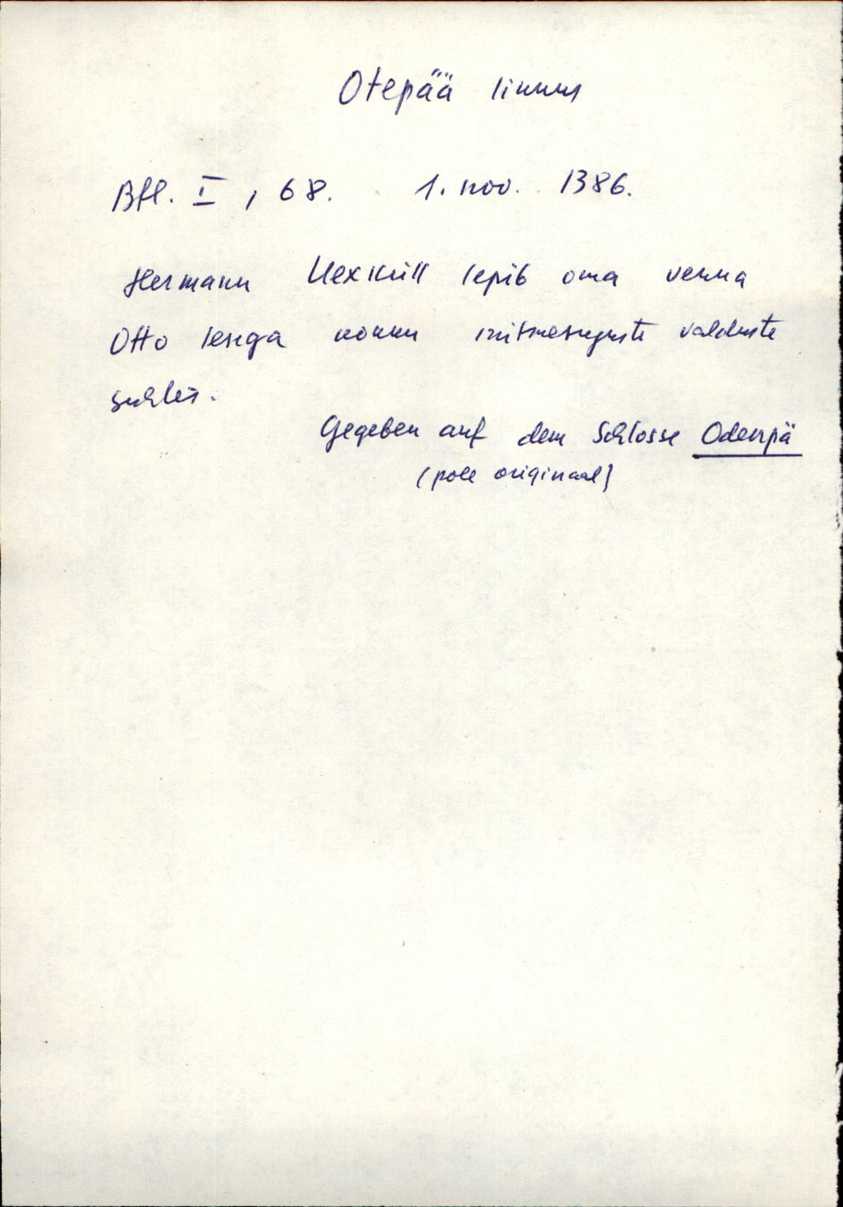 Otepää linnus
Bfl. I, 68. 1. nov. 1386.
Hermann Uexküll lepib oma venna
Otto lesega nonnu mitmesuguste valduste
suhtes.
Gegeben auf dem Schlosse Odenpä
(pole originaal)